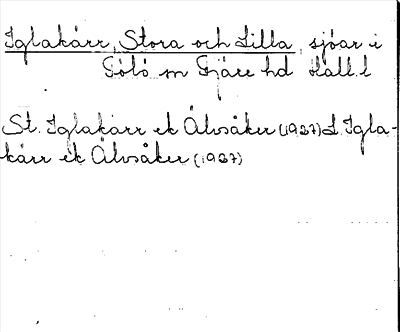 Iglakärr, Stora och Lilla, sjöar i
Sn Fjäre hd Hall. l
St. Iglakärr ek Älvsåker (1927) L. Igla-
kärr ek Älvsåker (1927)